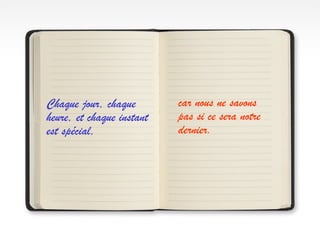 Chaque jour, chaque
heure, et chaque instant
est spécial.
car nous ne savons
pas si ce sera notre
dernier.